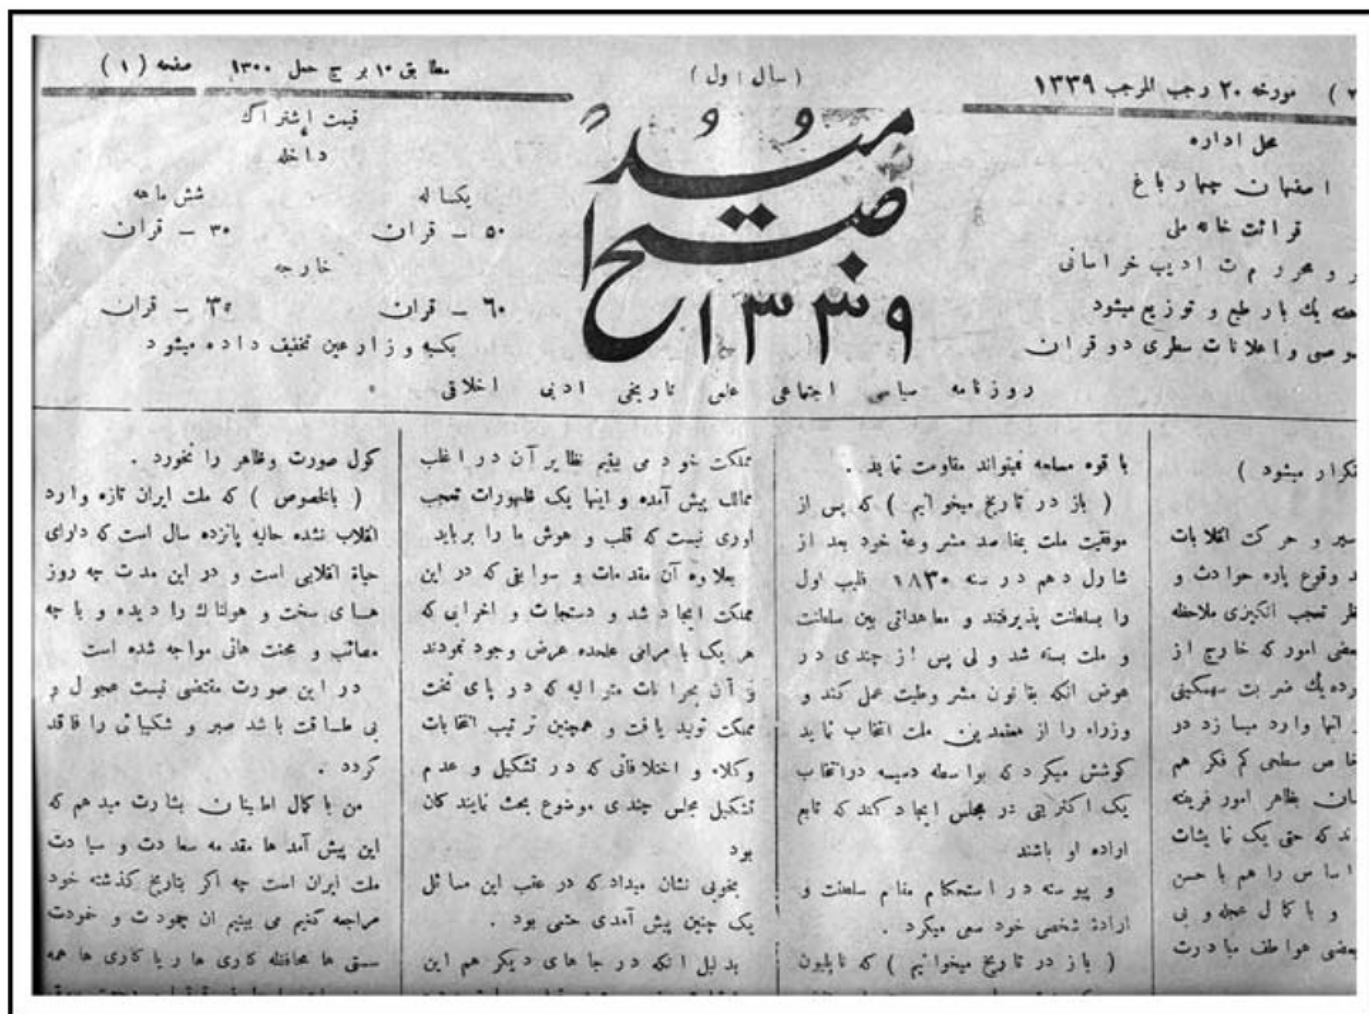 مورخه ۲۰ رجب المرجب ۱۳۳۹
( سال اول )
مطابق ۱۰ برج حمل ۱۳۰۰ صفحه ( ۱ )
محل اداره
اصفهان چهار باغ
قرائت خانه ملی
و محرر م ت ادیب خراسانی
هفته یك بار طبع و توزیع میشود
و اعلانات سطری دو قران
صبح امید
۱۳۳۹
قیمت اشتراك
داخله
یکساله شش ماهه
۵۰ ــ قران ۳۰ ــ قران
خارجه
۶۰ ــ قران ۳۵ ــ قران
بکسبه و زارعین تخفیف داده میشود
روزنامه سیاسی اجتماعی علمی تاریخی ادبی اخلاقی
تکرار میشود )
سیر و حرکت انقلابات
وقوع پاره حوادث و
تعجب انگیزی ملاحظه
بعضی امور که خارج از
یك ضربت سهمگینی
انها وارد میسازد دو
سطحی کم فکر هم
بظاهر امور فریفته
که حتی یک نمایشات
اساس را هم با حسن
و با کمال عجله و بی
بعضی عواطف مبادرت
با قوه مسلحه نمیتواند مقاومت نماید .
( باز در تاریخ میخوانیم ) که پس از
موفقیت ملت بمقاصد مشروعهٔ خود بعد از
شارل دهم در سنه ۱۸۳۰ فلیپ اول
را بسلطنت پذیرفتند و معاهداتی بین سلطنت
و ملت بسته شد ولی پس از چندی در
عوض انکه بقانون مشروطیت عمل کند و
وزراء را از معتمدین ملت انتخاب نماید
کوشش میکرد که بواسطه دسیسه درانتخاب
یک اکثریتی در مجلس ایجاد کند که تابع
اراده او باشند
و پیوسته در استحکام مقام سلطنت و
ارادهٔ شخصی خود سعی میکرد .
( باز در تاریخ میخوانیم ) که ناپلیون
مملکت خود می بینیم نظایر آن در اغلب
ممالک پیش آمده و اینها یک ظهورات تعجب
اوری نیست که قلب و هوش ما را برباید
بعلاوه آن مقدمات و سوابقی که در این
مملکت ایجاد شد و دستجات و احزابی که
هر یک با مرامی علیحده عرض وجود نمودند
و آن بحرانات متوالیه که در پای تخت
مملکت تولید یافت و همچنین ترتیب انتخابات
وکلاء و اختلافاتی که در تشکیل و عدم
تشکیل مجلس چندی موضوع بحث نمایندکان
بود
بخوبی نشان میداد که در عقب این مسائل
یک چنین پیش آمدی حتمی بود .
بدلیل انکه در جاهای دیکر هم این
کول صورت وظاهر را نخورد .
( بالخصوص ) که ملت ایران تازه وارد
انقلاب نشده حالیه پانزده سال است که دارای
حیاة انقلابی است و در این مدت چه روز
هسای سخت و هولناك را دیده و با چه
مصائب و محنت هائی مواجه شده است
در این صورت مقتضی نیست عجول و
بی طساقت باشد صبر و شکیبائی را فاقد
کردد .
من با کمال اطمینان بشارت میدهم که
این پیش آمدها مقدمه سعادت و سیادت
ملت ایران است چه اکر بتاریخ کذشته خود
مراجعه کنیم می بینیم ان جمودت و خمودت
سستی ها محافظه کاری ها ریاکاری ها همه